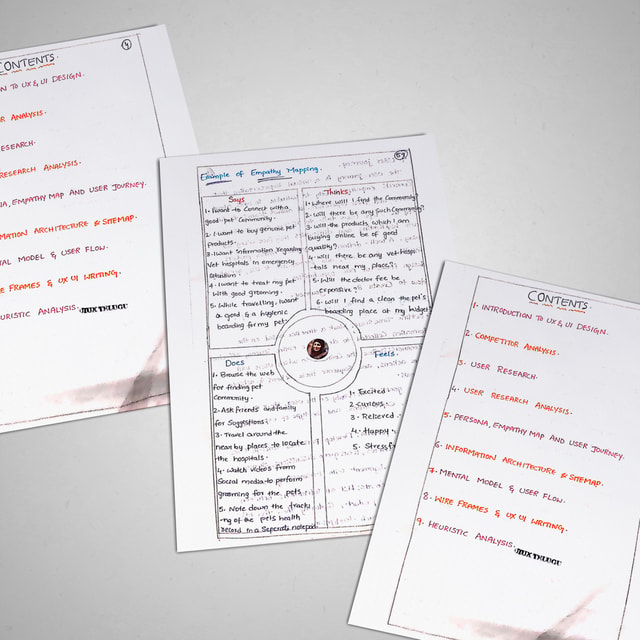 4
CONTENTS.
N TO UX & UI DESIGN.
R ANALYSIS.
ESEARCH.
RESEARCH ANALYSIS.
NA, EMPATHY MAP AND USER JOURNEY.
MATION ARCHITECTURE & SITEMAP.
TAL MODEL & USER FLOW.
RE FRAMES & UX UI WRITING.
EURISTIC ANALYSIS.
Example of Empathy Mapping.
Says
1. I want to Connect with a
good pet Community.
2. I want to buy genuine pet
products.
3. I want Information Regarding
Vet hospitals in emergency
Situation
4. I want to treat my pet
With good grooming.
5. While travelling, I want
a good & a hygienic
boarding for my pet
Thinks
1. Where will I find the Community?
2. Will there be any Such Community?
3. Will the products which I am
buying online be of good
quality?
4. Will there be any vet Hospi-
tals near my place?
5. Will the doctor fee be
Expensive
6. Will I find a clean the pet's
boarding place at my budget
Does
1. Browse the web
for finding pet
Community.
2. Ask friends and family
for Suggestions
3. Travel around the
near by places to locate
the hospitals.
4. Watch videos from
Social media to perform
grooming for the pets
5. Note down the track
-ng of the pets health
record in a Seperate notepad
Feels.
1. Excited
2. curious.
3. Relieved.
4. Happy.
5. Stressf
CONTENTS.
1. INTRODUCTION TO UX & UI DESIGN.
2. COMPETITOR ANALYSIS.
3. USER RESEARCH.
4. USER RESEARCH ANALYSIS.
5. PERSONA, EMPATHY MAP AND USER JOURNEY.
6. INFORMATION ARCHITECTURE & SITEMAP.
7. MENTAL MODEL & USER FLOW.
8. WIRE FRAMES & UX UI WRITING.
9. HEURISTIC ANALYSIS.